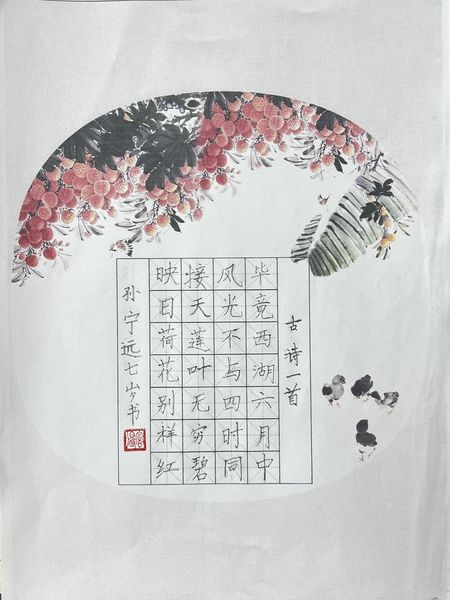 古诗一首
毕竟西湖六月中
风光不与四时同
接天莲叶无穷碧
映日荷花别样红
孙宁远七岁书